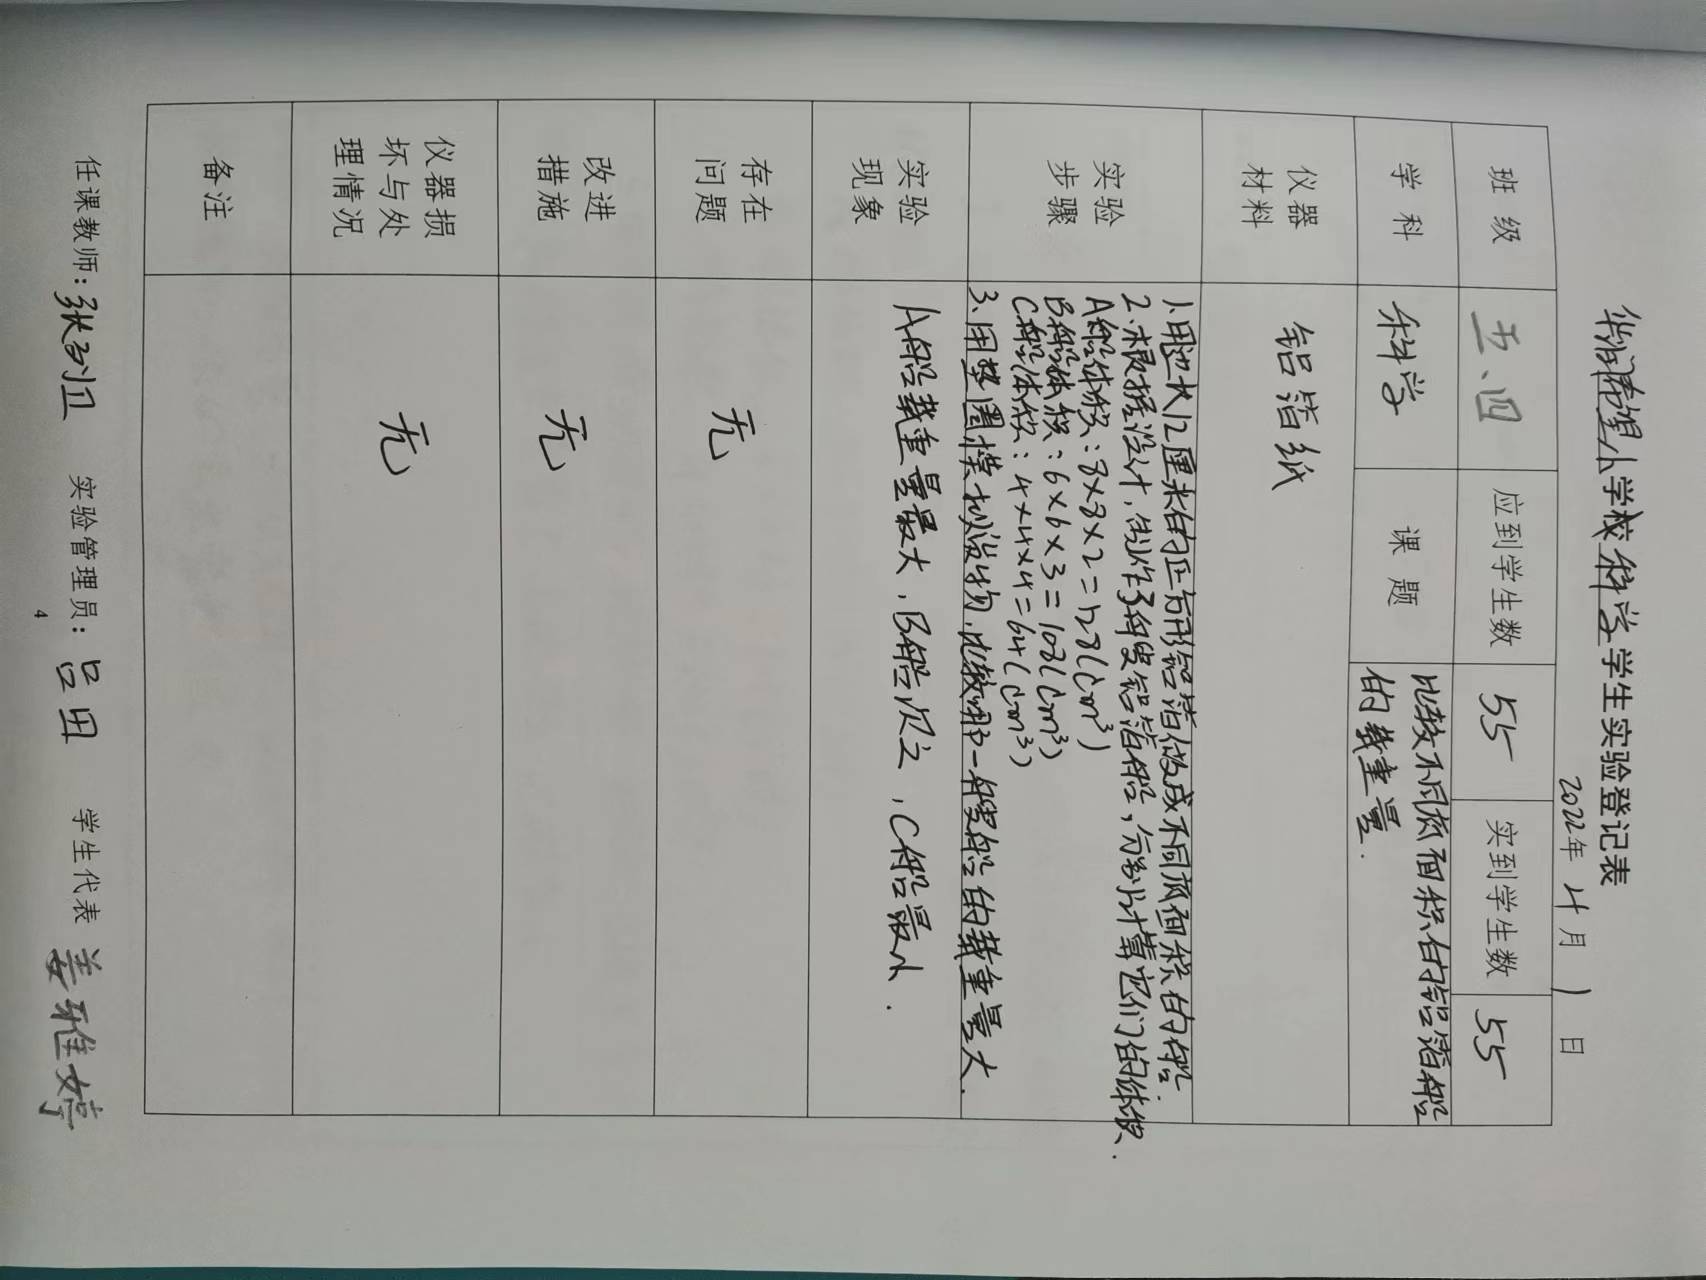 小学校科学学生实验登记表
2022年 4月 1日
班级 五、四 应到学生数 55 实到学生数 55
学科 科学 课题 比较不同底面积的铝箔船
的载重量.
仪器
材料
铝皆纸
实验
步骤
1.用边长12厘米的正方形铝箔做成不同底面积的船.
2.根据设计,制作3艘铝箔船,分别计算它们的体积.
A船体积:8×8×2=128(cm³)
B船体积:6×6×3=108(cm³)
C船体积:4×4×4=64(cm³)
3.用垫圈模拟货物,比较哪一艘船的载重量大.
实验
现象
A船载重量最大,B船次之,C船最小.
存在
问题
无
改进
措施
无
仪器损
坏与处
理情况
无
备注
任课教师: 实验管理员:吕田 学生代表 姜雅婷
4